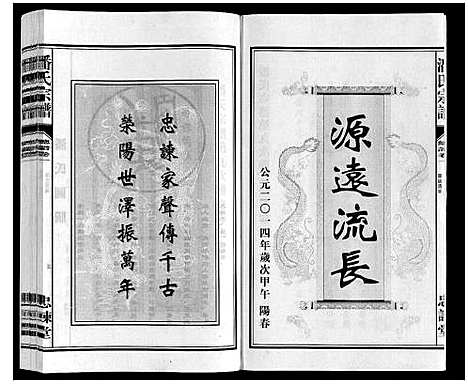 源遠流長
公元二〇一四年歲次甲午 陽春
忠諫家聲傳千古
滎陽世澤振萬年
潘氏宗譜
忠諫堂